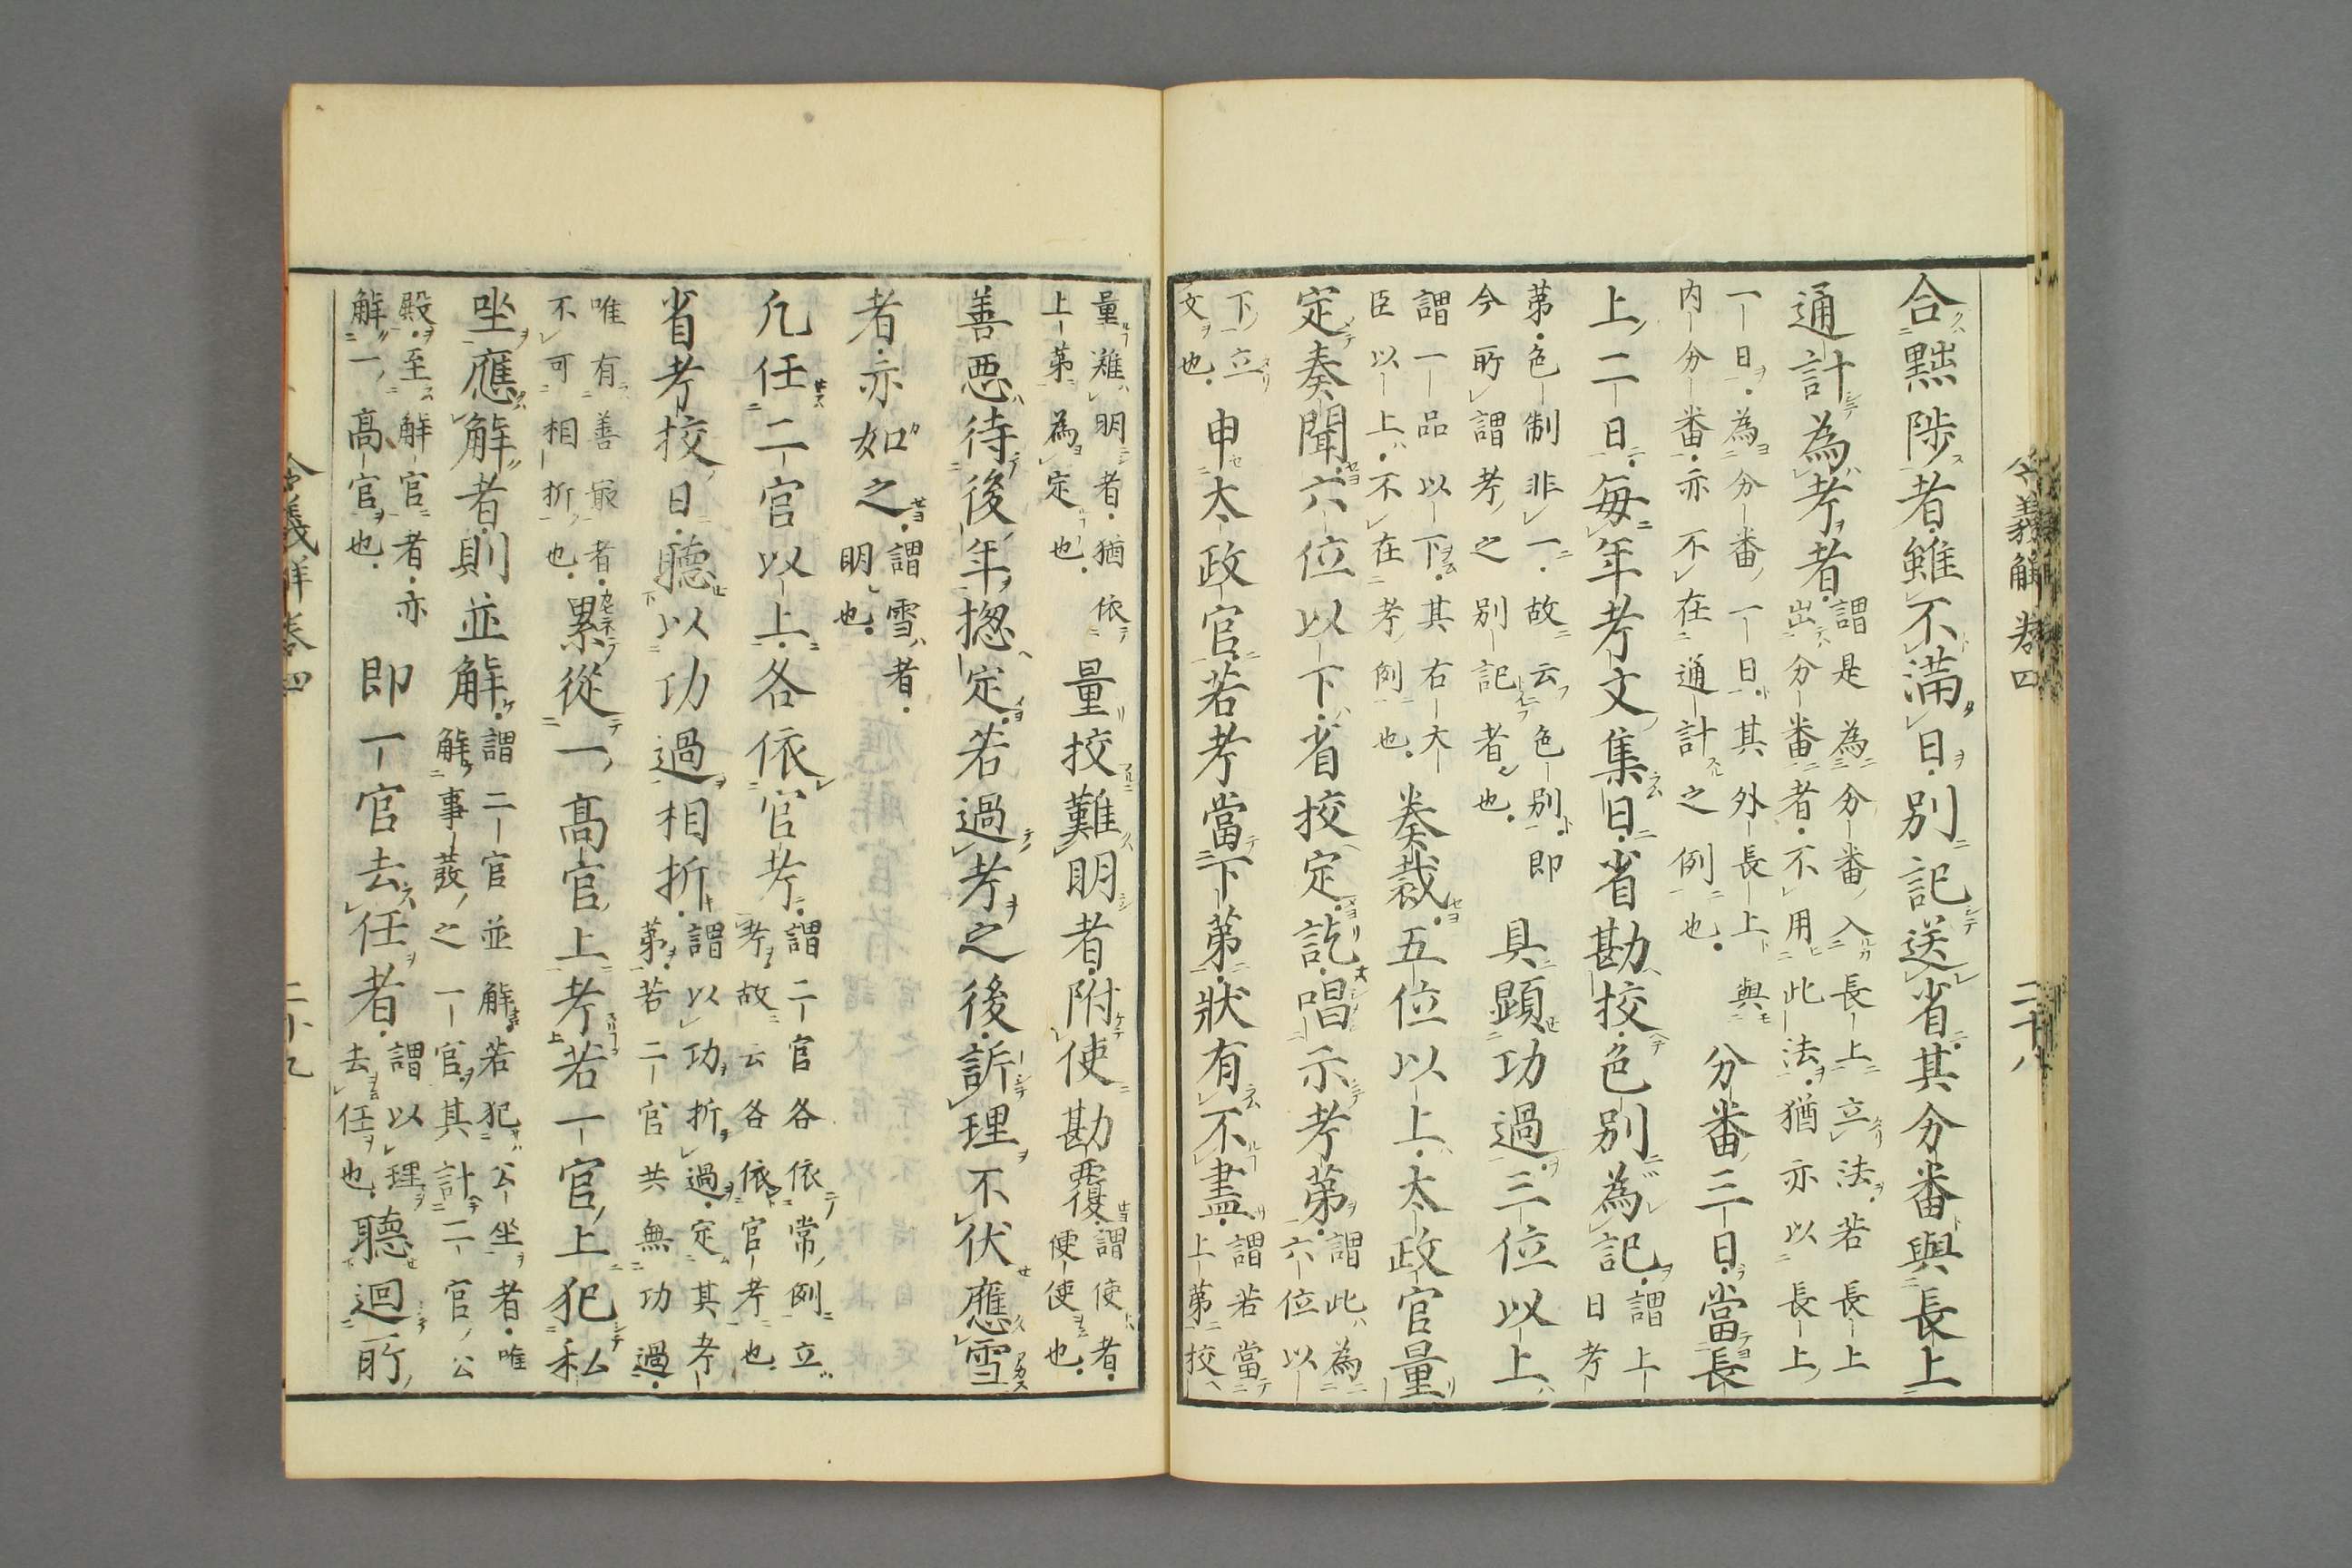 合黜陟者雖不滿日別記送省其分番與長上
通計為考者謂是為分番入長上立法若長上
出分番者不用此法猶亦以長上
一日為分番一日其外長上與
内分番亦不在通計之例也分番三日當長
上二日每年考文集日省勘挍色別為記謂上
日考
第色制非一故云色別即
今所謂考之別記者也具顯功過三位以上
謂一品以下其右大
臣以上不在考例也奏裁五位以上太政官量
定奏聞六位以下省挍定訖唱示考第謂此為
六位以
下立
文也申太政官若考當下第狀有不盡謂若當
上第挍
量難明者猶依
上第為定也量挍難明者附使勘覆謂使者
便使也
善惡待後年揔定若過考之後訴理不伏應雪
者亦如之謂雪者
明也
凢任二官以上各依官考謂二官各依常例立
考故云各依官考也
省考挍日聽以功過相折謂以功折過定其考
第若二官共無功過
唯有善最者
不可相折也累從一高官上考若一官上犯私
坐應解者則並解謂二官並解若犯公坐者唯
解事發之一官其計二官公
殿至解官者亦
解一高官也即一官去任者謂以理
去任也聽迴所
令義解卷四
二十八
令義解卷四
二十九